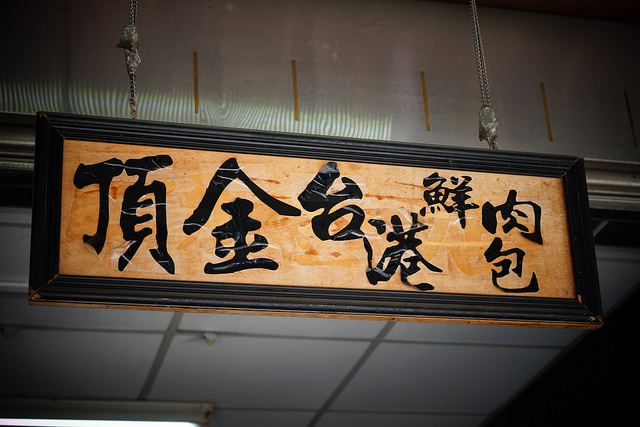 頂金台港鮮肉包